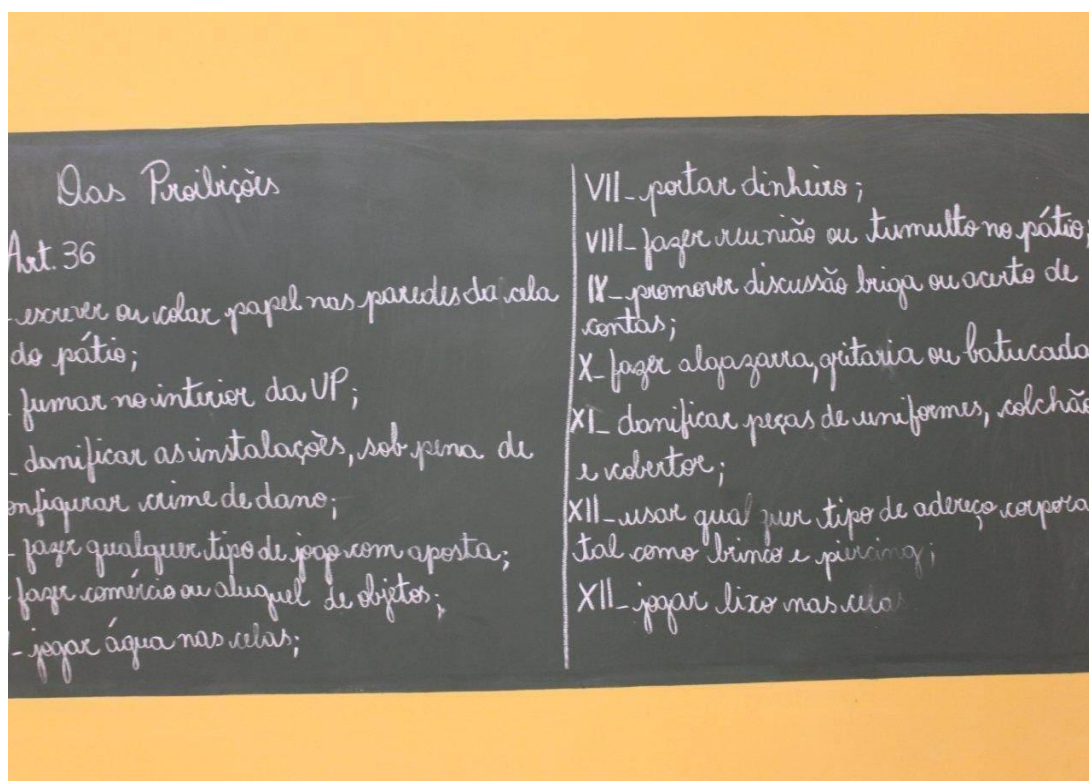 Das Proibições
Art. 36
- escrever ou colar papel nas paredes da cela
do pátio;
- fumar no interior da UP;
- danificar as instalações, sob pena de
onfigurar crime de dano;
- fazer qualquer tipo de jogo com aposta;
- fazer comércio ou aluguel de objetos;
- jogar água nas celas;
VII - portar dinheiro;
VIII - fazer reunião ou tumulto no pátio;
IX - promover discussão briga ou acerto de
contas;
X - fazer algazarra, gritaria ou batucada
XI - danificar peças de uniformes, colchão
e cobertor;
XII - usar qualquer tipo de adereço corpora
tal como brinco e piercing;
XII - jogar lixo nas celas